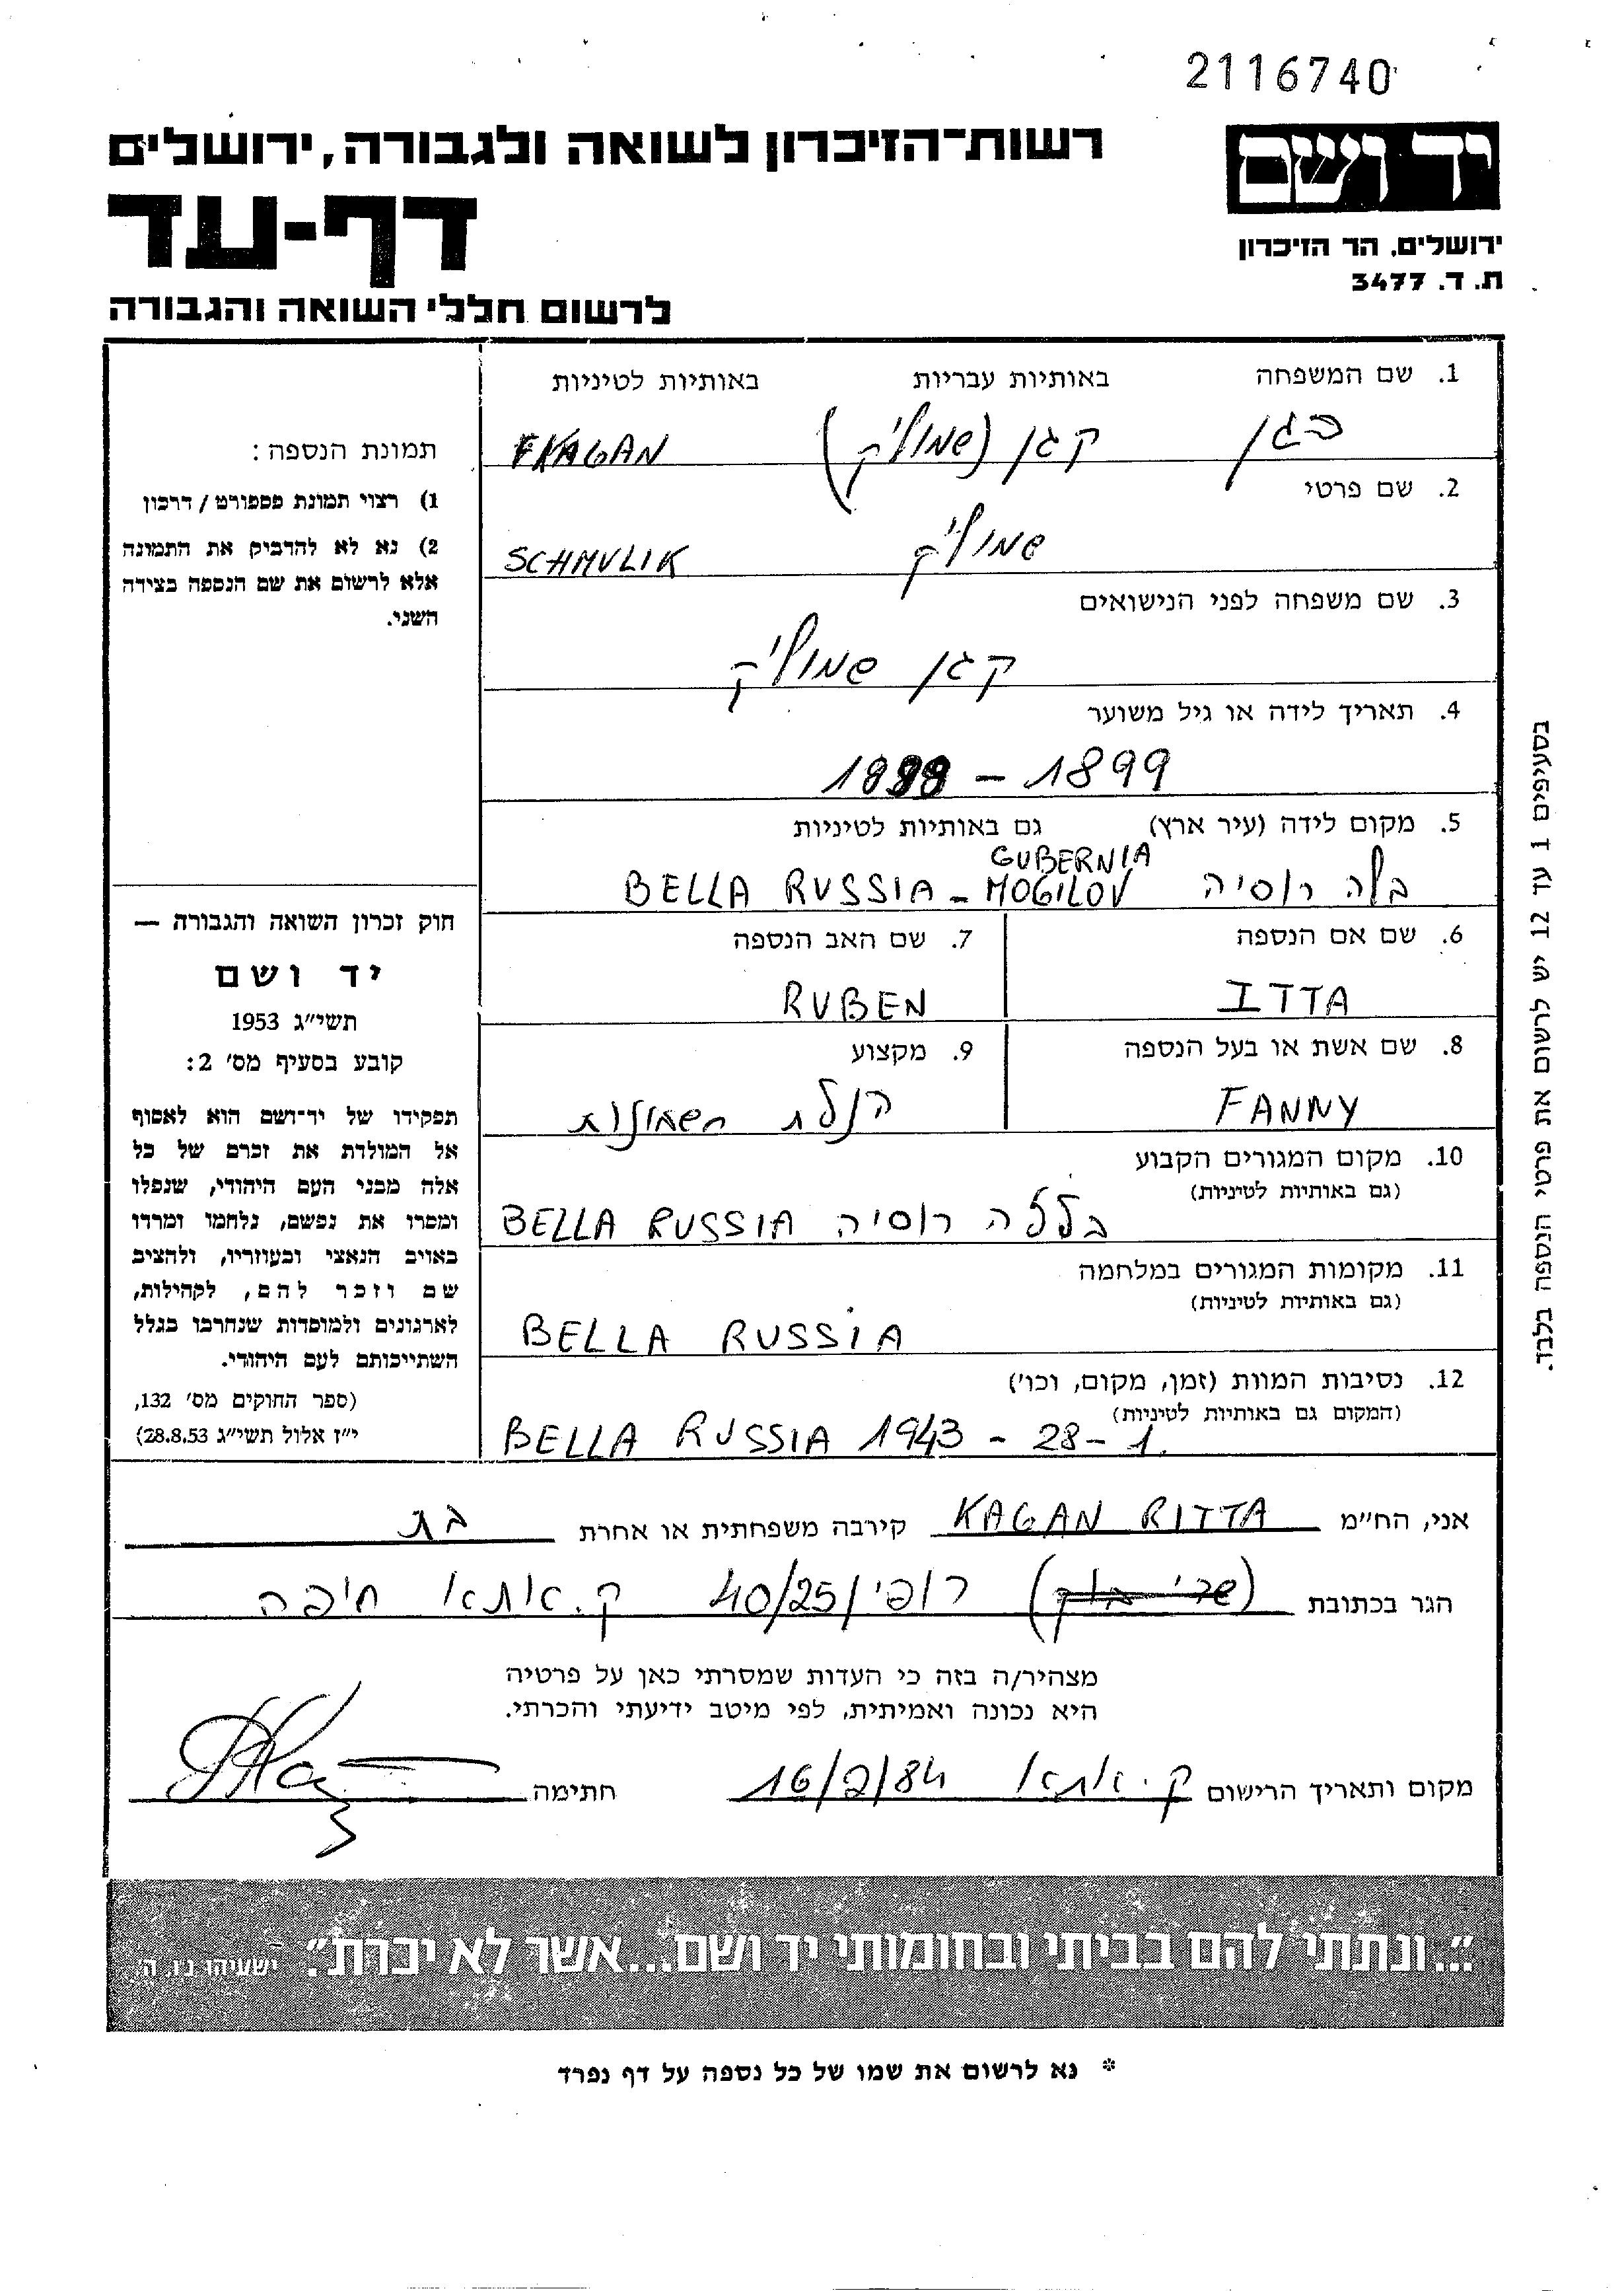 2116740
יד ושם
ירושלים, הר הזיכרון
ת. ד. 3477
רשות-הזיכרון לשואה ולגבורה, ירושלים
דף-עד
לרשום חללי השואה והגבורה
1. שם המשפחה באותיות עבריות באותיות לטיניות
כגן קגן (שמוליק) KAGAN
2. שם פרטי
שמוליק SCHMULIK
3. שם משפחה לפני הנישואים
קגן שמוליק
4. תאריך לידה או גיל משוער
1899 -
5. מקום לידה (עיר ארץ) גם באותיות לטיניות
GUBERNIA
בלה רוסיה BELLA RUSSIA - MOGILOV
6. שם אם הנספה
ITTA
7. שם האב הנספה
RUBEN
8. שם אשת או בעל הנספה
FANNY
9. מקצוע
הנלת חשבונות
10. מקום המגורים הקבוע
(גם באותיות לטיניות)
בללה רוסיה BELLA RUSSIA
11. מקומות המגורים במלחמה
(גם באותיות לטיניות)
BELLA RUSSIA
12. נסיבות המוות (זמן, מקום, וכו')
(המקום גם באותיות לטיניות)
BELLA RUSSIA 1943 - 28 - 1.
תמונת הנספה:
1) רצוי תמונת פספורט / דרכון
2) נא לא להדביק את התמונה
אלא לרשום את שם הנספה בצידה
השני.
חוק זכרון השואה והגבורה —
יד ושם
תשי"ג 1953
קובע בסעיף מס' 2:
תפקידו של יד-ושם הוא לאסוף
אל המולדת את זכרם של כל
אלה מבני העם היהודי, שנפלו
ומסרו את נפשם, נלחמו ומרדו
באויב הנאצי ובעוזריו, ולהציב
שם וזכר להם, לקהילות,
לארגונים ולמוסדות שנחרבו בגלל
השתייכותם לעם היהודי.
(ספר החוקים מס' 132,
י"ז אלול תשי"ג 28.8.53)
בסעיפים 1 עד 12 יש לרשום את פרטי הנספה בלבד.
אני, הח"מ KAGAN RITTA קירבה משפחתית או אחרת בת
הגר בכתובת רופין 40/25 ק. אתא חיפה
מצהיר/ה בזה כי העדות שמסרתי כאן על פרטיה
היא נכונה ואמיתית, לפי מיטב ידיעתי והכרתי.
מקום ותאריך הרישום ק. אתא 16/2/84 חתימה
"...ונתתי להם בביתי ובחומותי יד ושם...אשר לא יכרת". ישעיהו נו, ה'
* נא לרשום את שמו של כל נספה על דף נפרד